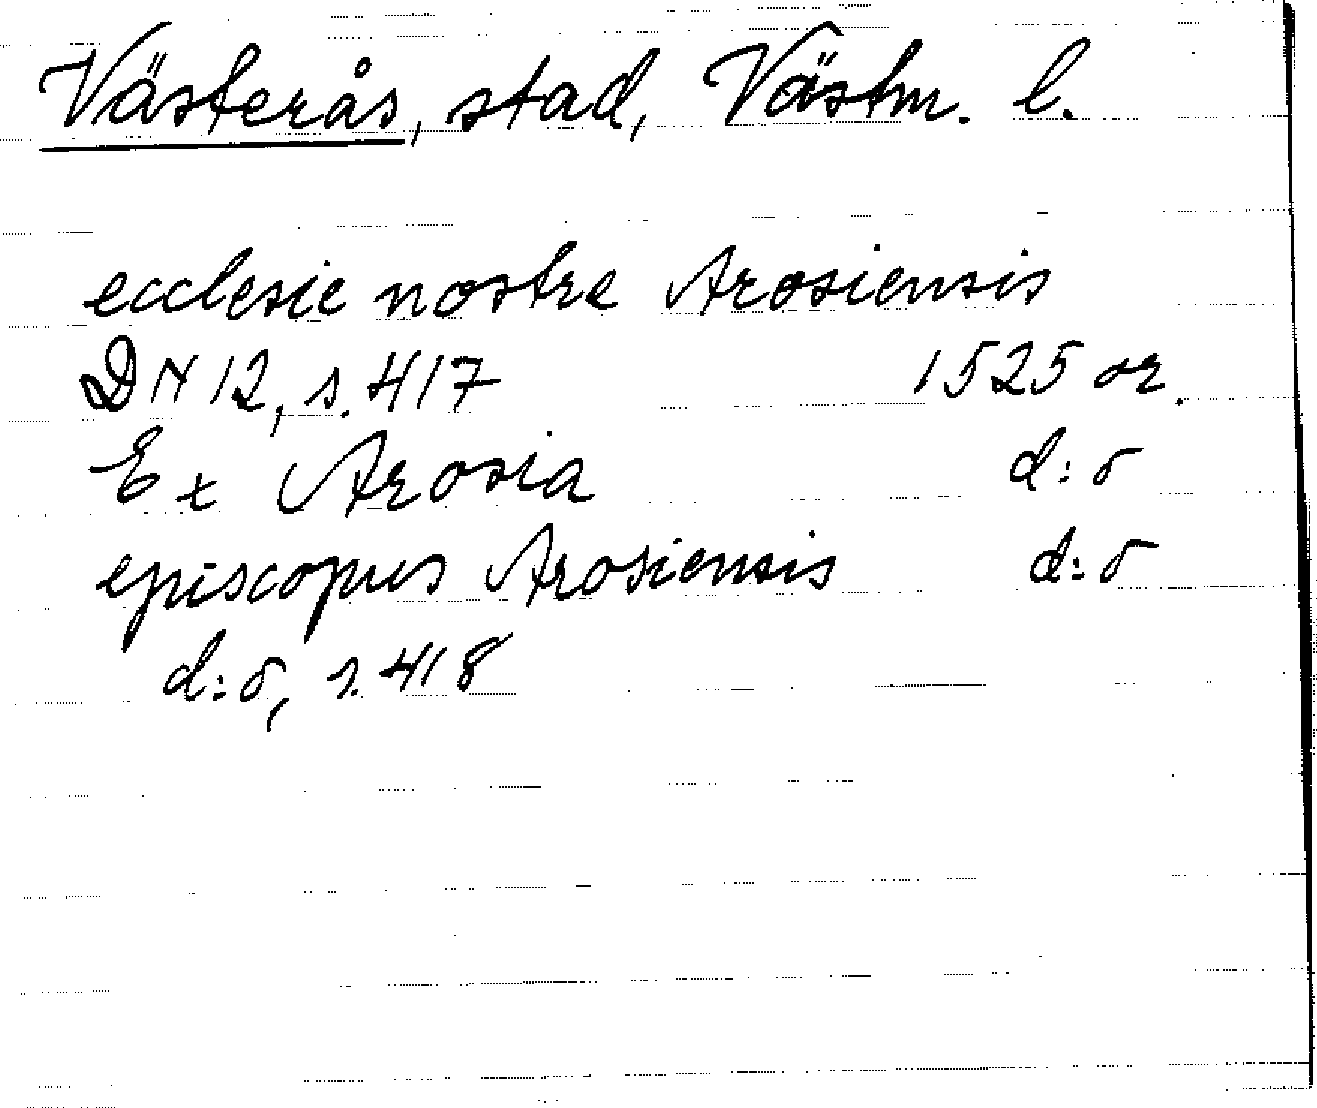 Västerås, stad, Västm. l.
ecclesie nostre Arosiensis
DN 12, s. 417 1525 or.
Ex Arosia d:o
episcopus Arosiensis d:o
d:o, s. 418